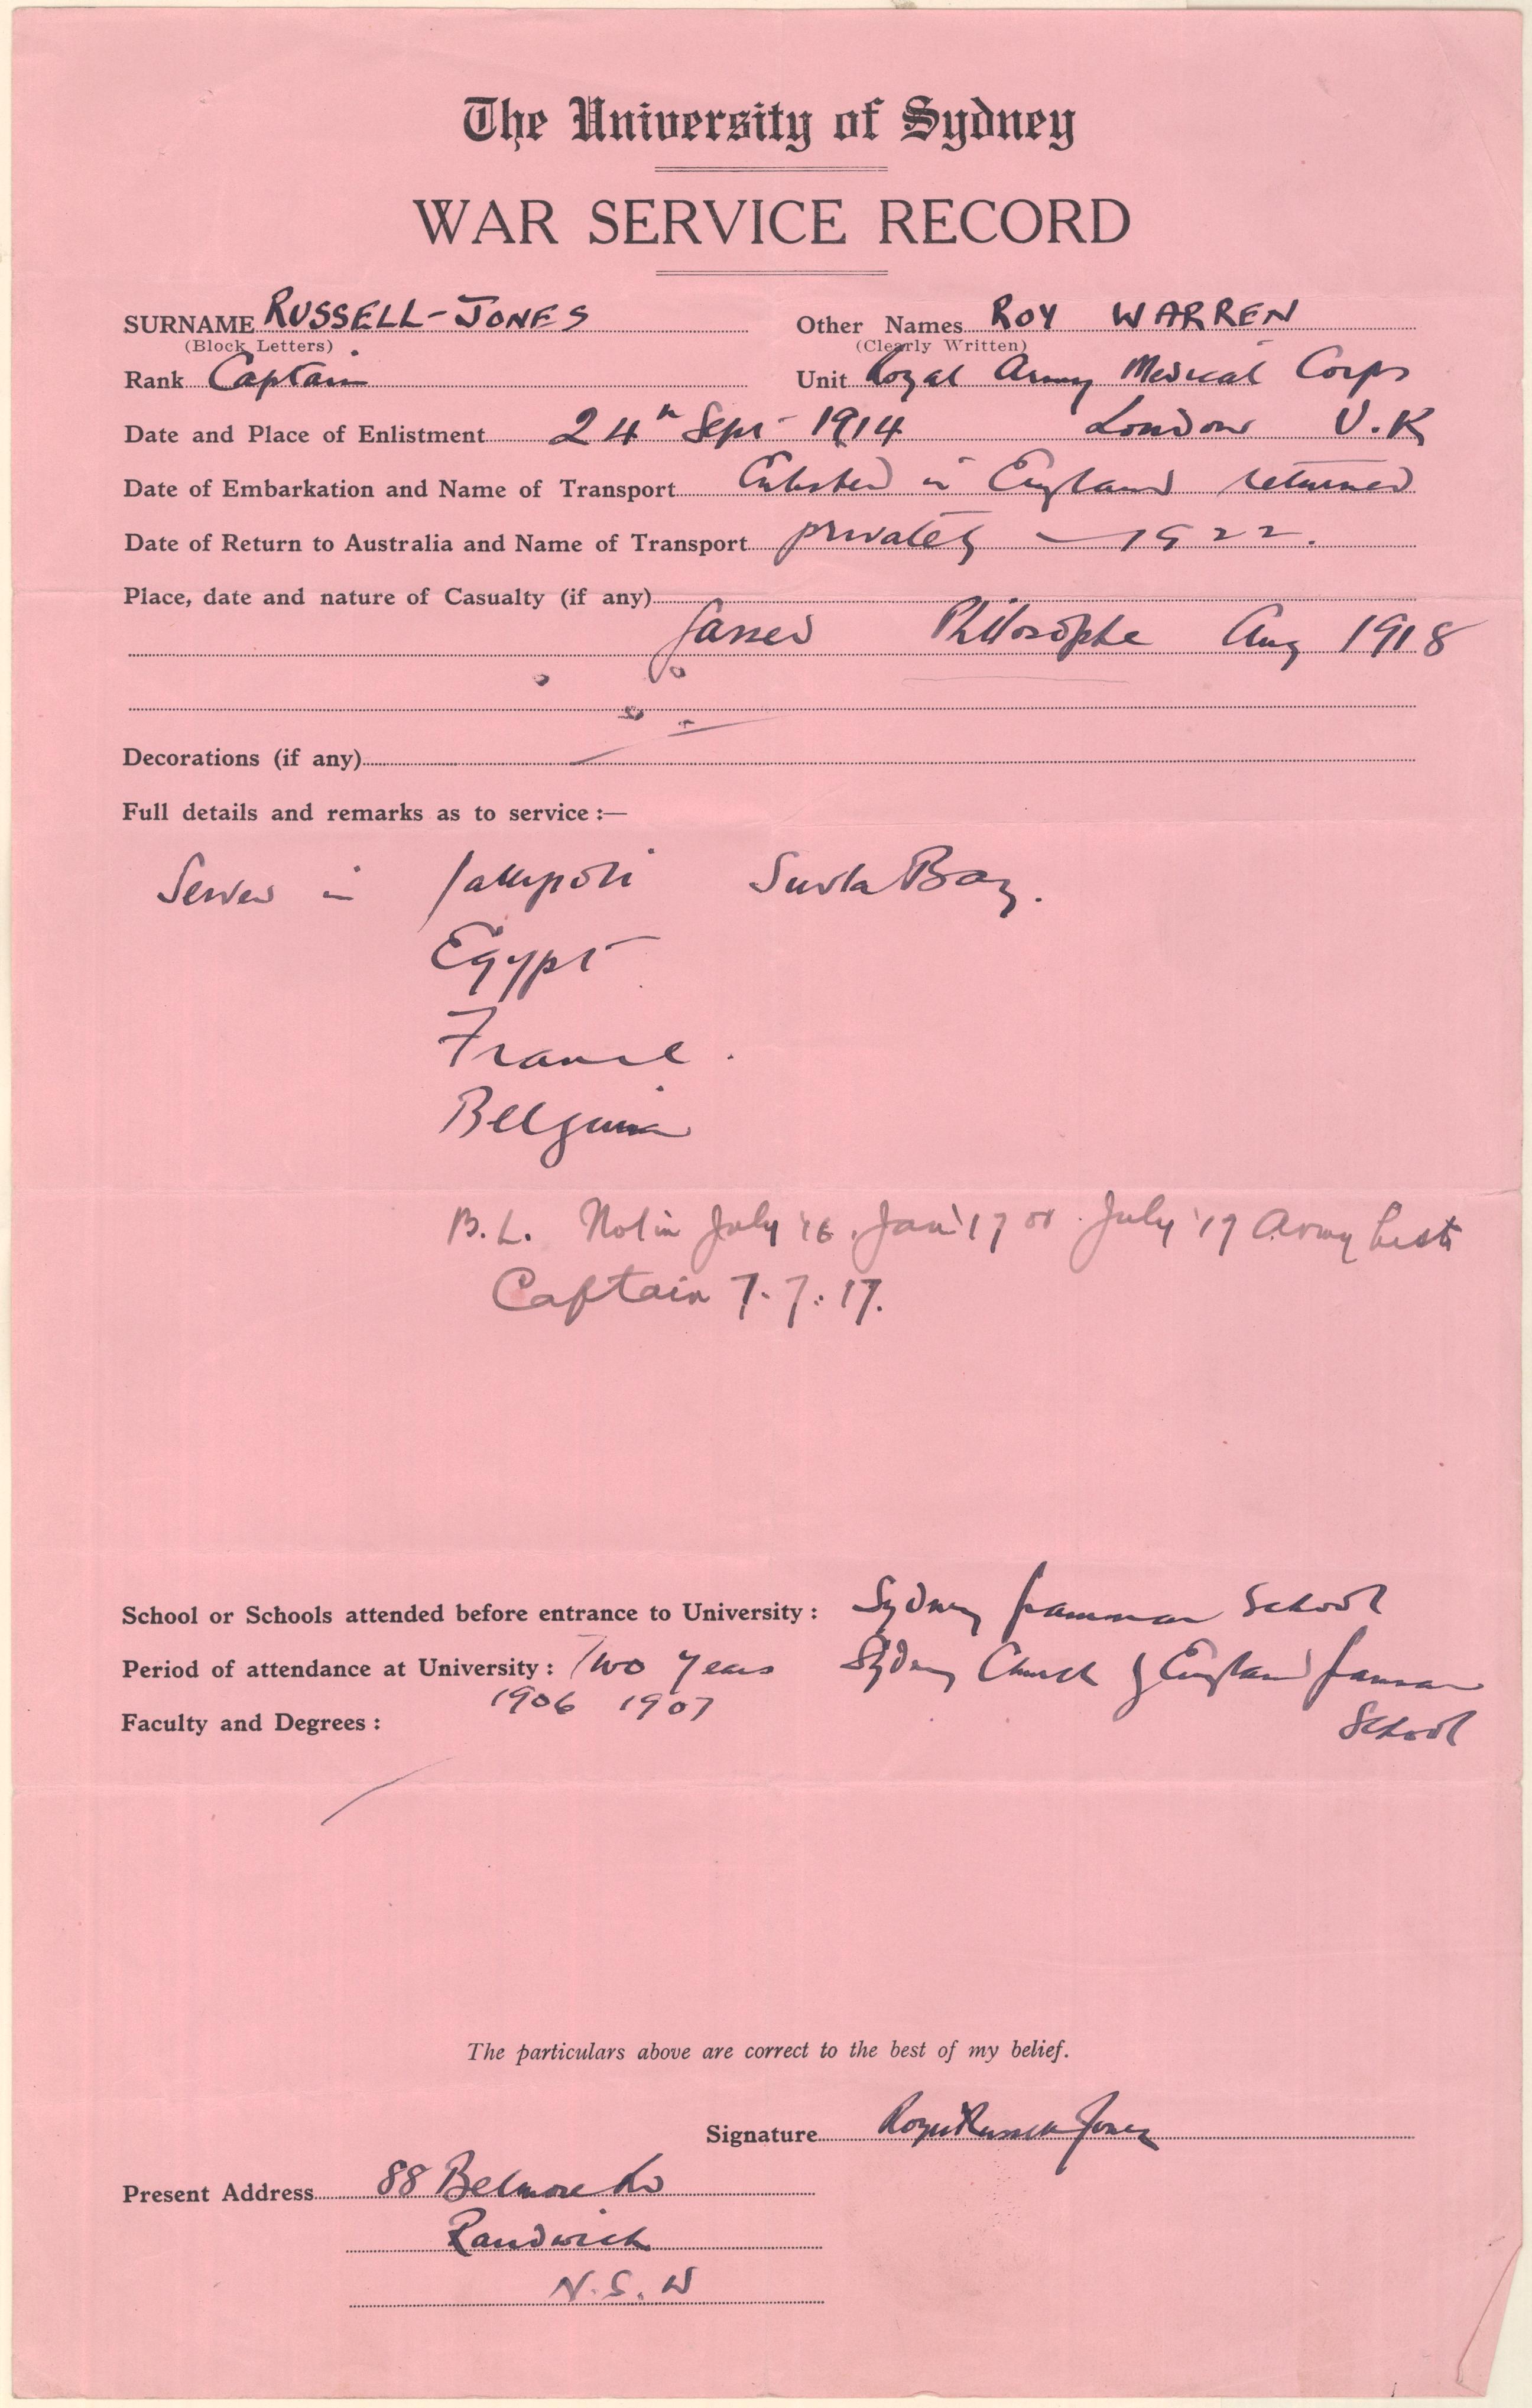 The University of Sydney
WAR SERVICE RECORD
SURNAME RUSSELL-JONES Other Names ROY WARREN
(Block Letters) (Clearly Written)
Rank Captain Unit Royal Army Medical Corps
Date and Place of Enlistment 24th Sept 1914 London U.K
Date of Embarkation and Name of Transport Enlisted in England returned
Date of Return to Australia and Name of Transport privately — 1922.
Place, date and nature of Casualty (if any)
Gassed Philosophe Aug 1918
Decorations (if any)
Full details and remarks as to service :—
Served in Gallipoli Suvla Bay.
Egypt
France.
Belgium
B.L. Not in July '16, Jan '17 or July '17 Army Lists
Captain 7.7.17.
School or Schools attended before entrance to University : Sydney Grammar School
Period of attendance at University : Two Years Sydney Church of England Grammar
1906 1907 School
Faculty and Degrees :
The particulars above are correct to the best of my belief.
Signature Roy W Russell Jones
Present Address 88 Belmore Rd
Randwick
N.S.W